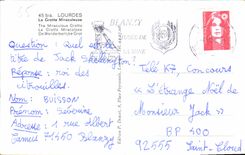 45 bis LOURDES
La Grotte Miraculeuse
The Miraculous Grotto
La Gruta Milagrosa
Die Wunderbare Grotte
BLANZY
MUSÉE DE
LA MINE
Question : Quel est le
titre de Jack Skellington?
Réponse : roi des
citrouilles.
Nom : BUISSON
Prénom :
Adresse : 4 rue Albert
Camus 71450 Blanzy
Télé K7, Concours
"L'Étrange Noël de
Monsieur Jack"
BP 400
92555 Saint-Cloud